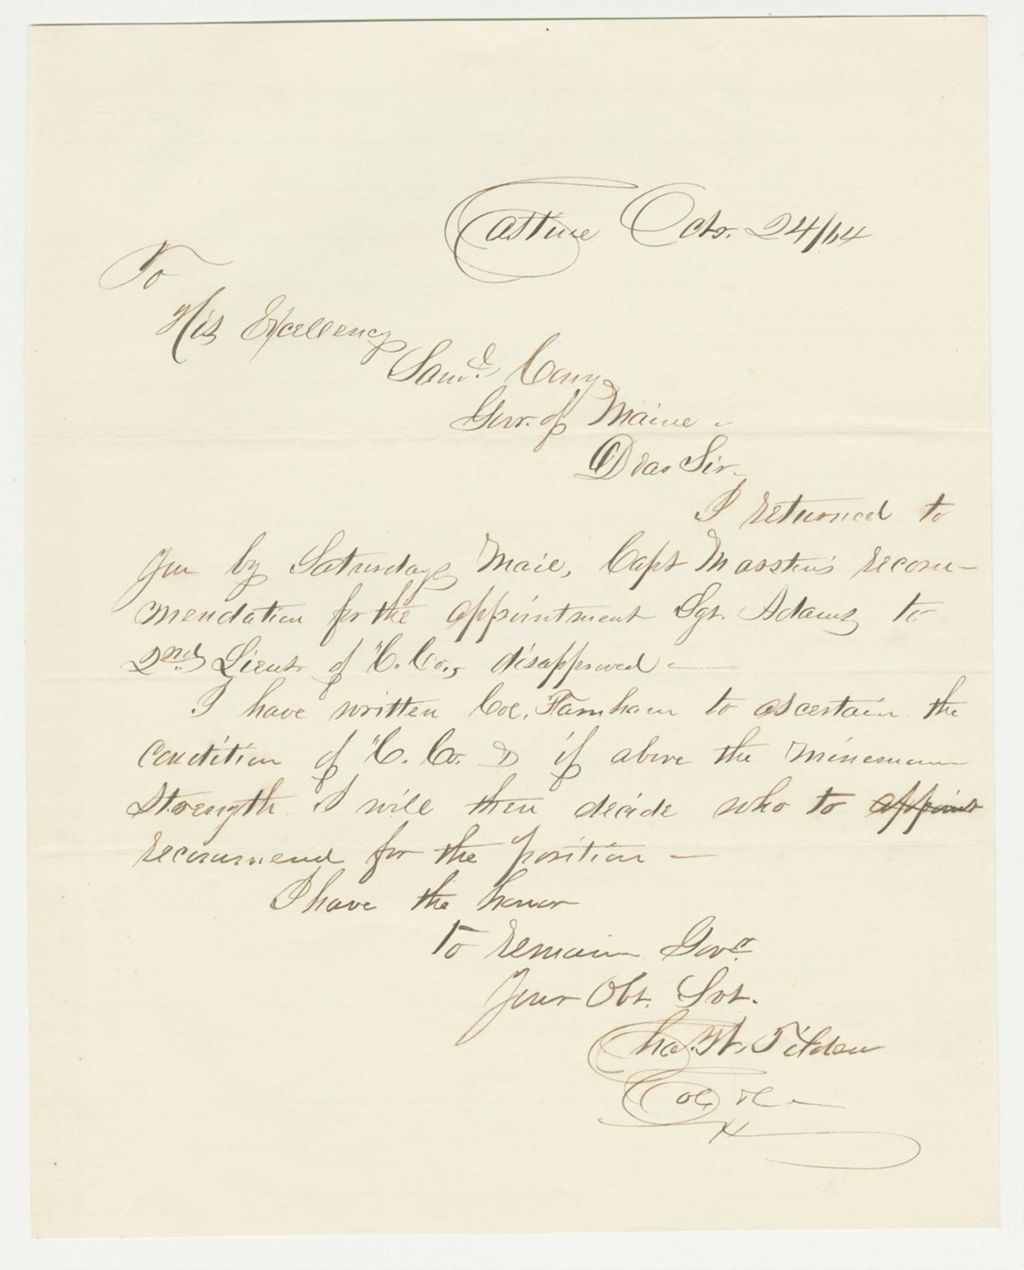 Castine Octr. 24/64
To
His Excellency
Saml. Cony
Gov. of Maine
Dear Sir.
I returned to
you by Saturdays Mail, Capt Marston's recom-
mendation for the appointment Sgt. Adams to
2nd. Lieut. of "C. Co., disapproved —
I have written Col. Farnham to ascertain the
condition of "C. Co. & if above the minemum
strength I will then decide who to appoint
recommend for the position —
I have the honor
to remain Govr.
Your Obt. Svt.
Chas. W. Tilden
Col &c